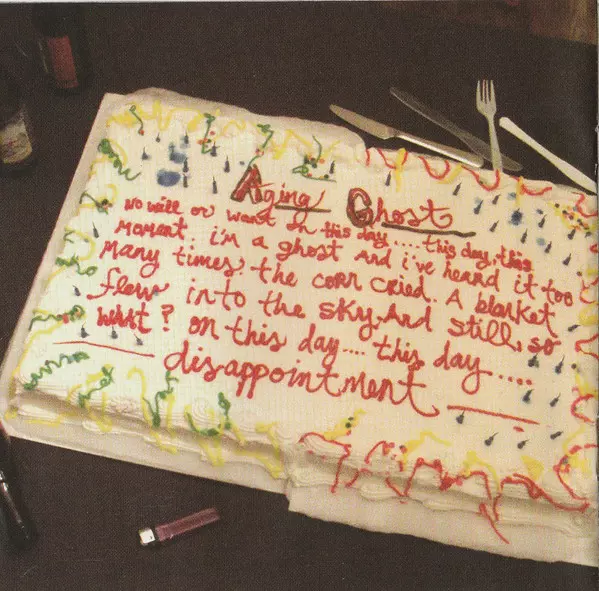 Aging Ghost
No will or want on this day .... this day, this
moment i'm a ghost And i've heard it too
many times. the corn cried. A blanket
flew into the sky. And still, so
what? on this day .... this day .....
disappointment